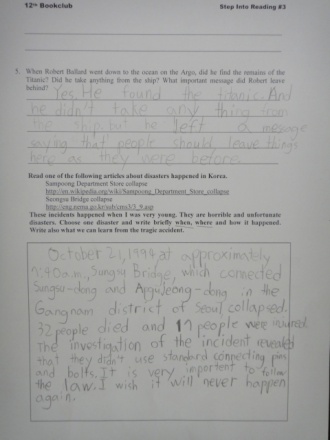 12th Bookclub Step Into Reading #3
5. When Robert Ballard went down to the ocean on the Argo, did he find the remains of the
Titanic? Did he take anything from the ship? What important message did Robert leave
behind?
Yes. He found the titanic. And
he didn't take any thing from
the ship. but he left a message
saying that people should, leave things
here as they were before.
Read one of the following articles about disasters happened in Korea.
Sampoong Department Store collapse
http://en.wikipedia.org/wiki/Sampoong_Department_Store_collapse
Seongsu Bridge collapse
These incidents happened when I was very young. They are horrible and unfortunate
disasters. Choose one disaster and write briefly when, where and how it happened.
Write also what we can learn from the tragic accident.
October 21, 1994 at approximately
7:40a.m, Sungsu Bridge, which connected
Sungsu-dong and Apgujeong-dong in the
Gangnam district of Seoul collapsed.
32 people died and 17 people were injured.
The investigation of the incident revealed
that they didn't use standard connecting pins
and bolts. It is very important to follow
the law. I wish it will never happen
again.